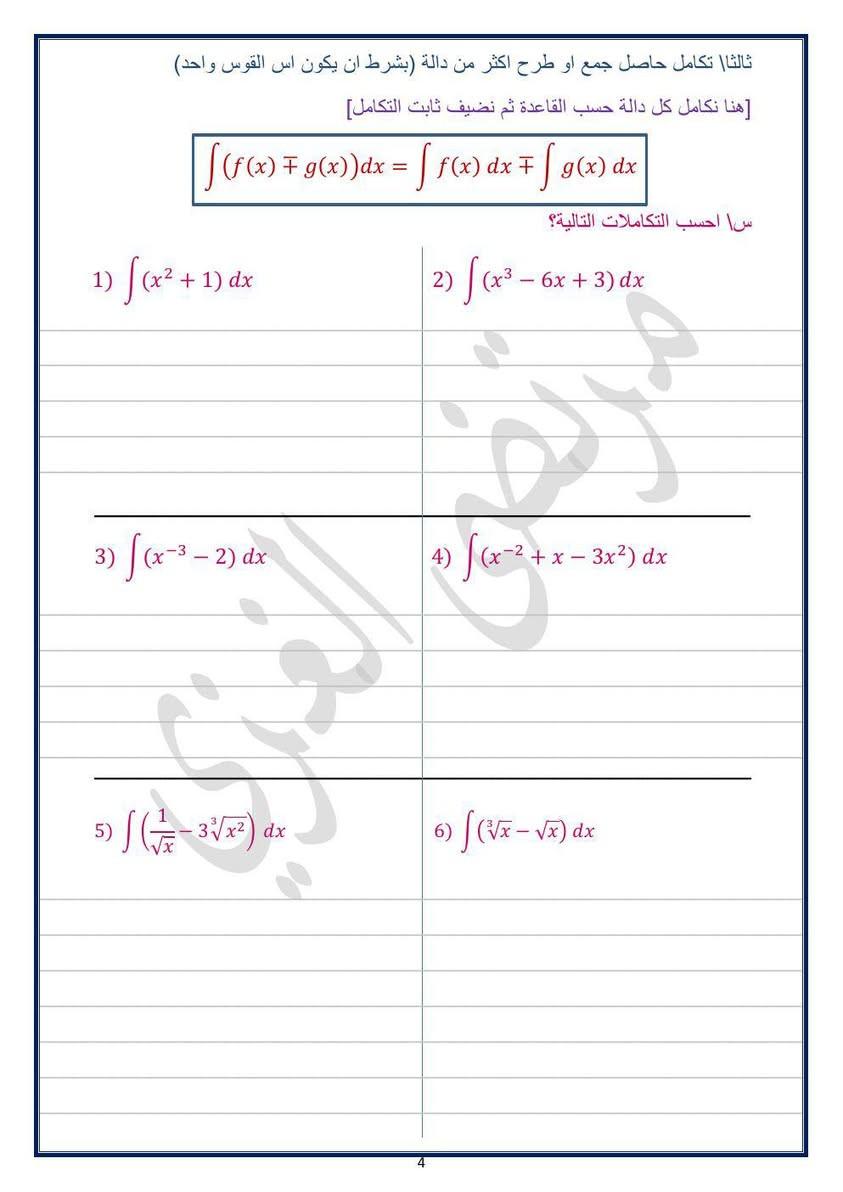 ثالثا\ تكامل حاصل جمع او طرح اكثر من دالة (بشرط ان يكون اس القوس واحد)
[هنا نكامل كل دالة حسب القاعدة ثم نضيف ثابت التكامل]
∫(f(x) ∓ g(x))dx = ∫ f(x) dx ∓ ∫ g(x) dx
س\ احسب التكاملات التالية؟
1) ∫(x² + 1) dx
2) ∫(x³ − 6x + 3) dx
3) ∫(x⁻³ − 2) dx
4) ∫(x⁻² + x − 3x²) dx
5) ∫(1/√x − 3∛x²) dx
6) ∫(∛x − √x) dx
مرتضى العزي
4